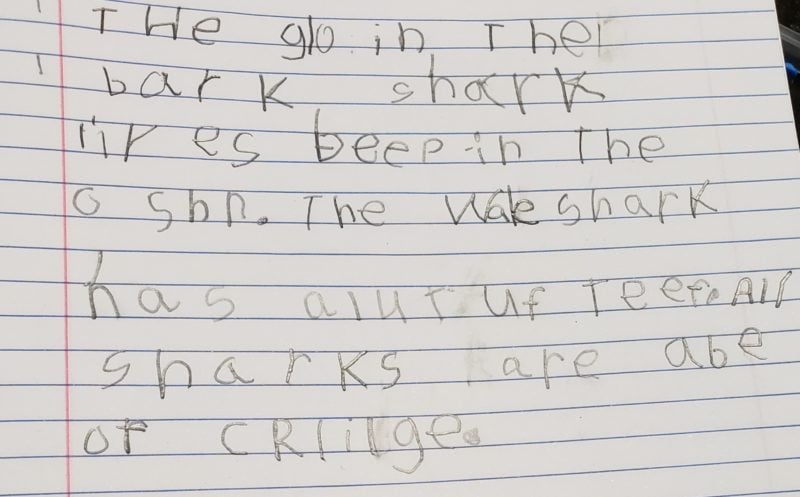 THe glo in The
bark shark
lives beep in the
o shn. The wale shark
has a lut uf Teef. All
sharks are abe
of CRlilge.